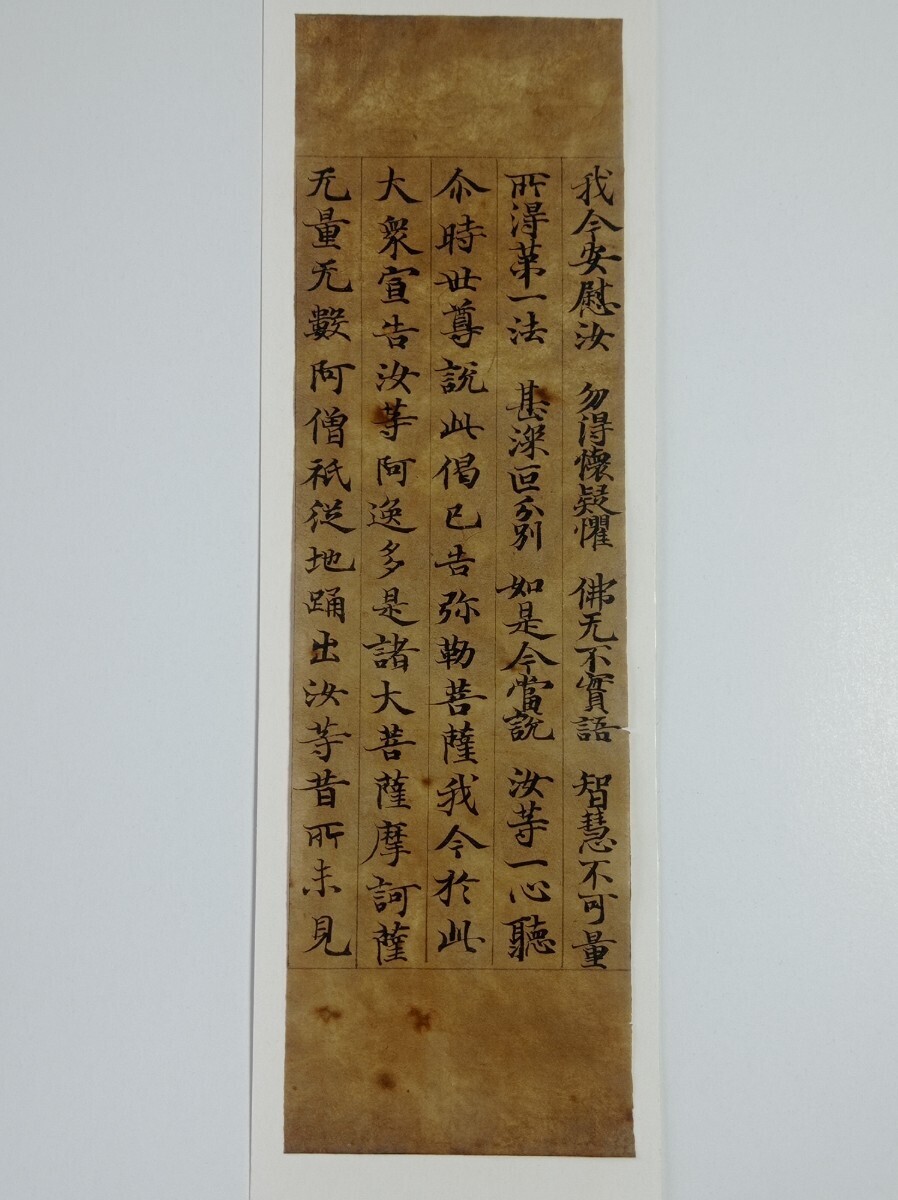 我今安慰汝　勿得懷疑懼　佛无不實語　智慧不可量
所得苐一法　甚深叵分別　如是今當說　汝等一心聽
尒時世尊說此偈已告弥勒菩薩我今於此
大衆宣告汝等阿逸多是諸大菩薩摩訶薩
无量无數阿僧祇從地踊出汝等昔所未見